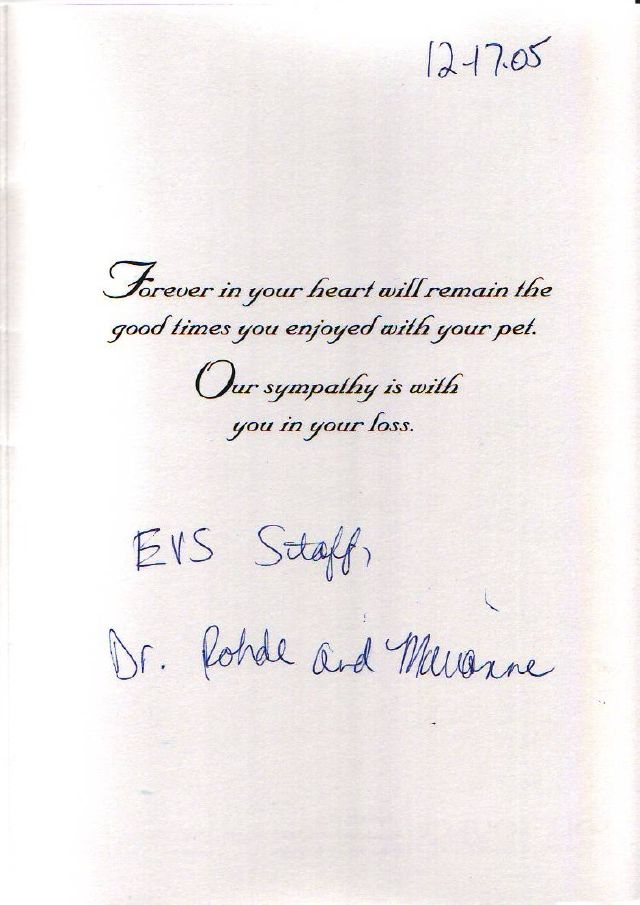 12-17.05
Forever in your heart will remain the
good times you enjoyed with your pet.
Our sympathy is with
you in your loss.
EVS Staff,
Dr. Rohde and Marianne